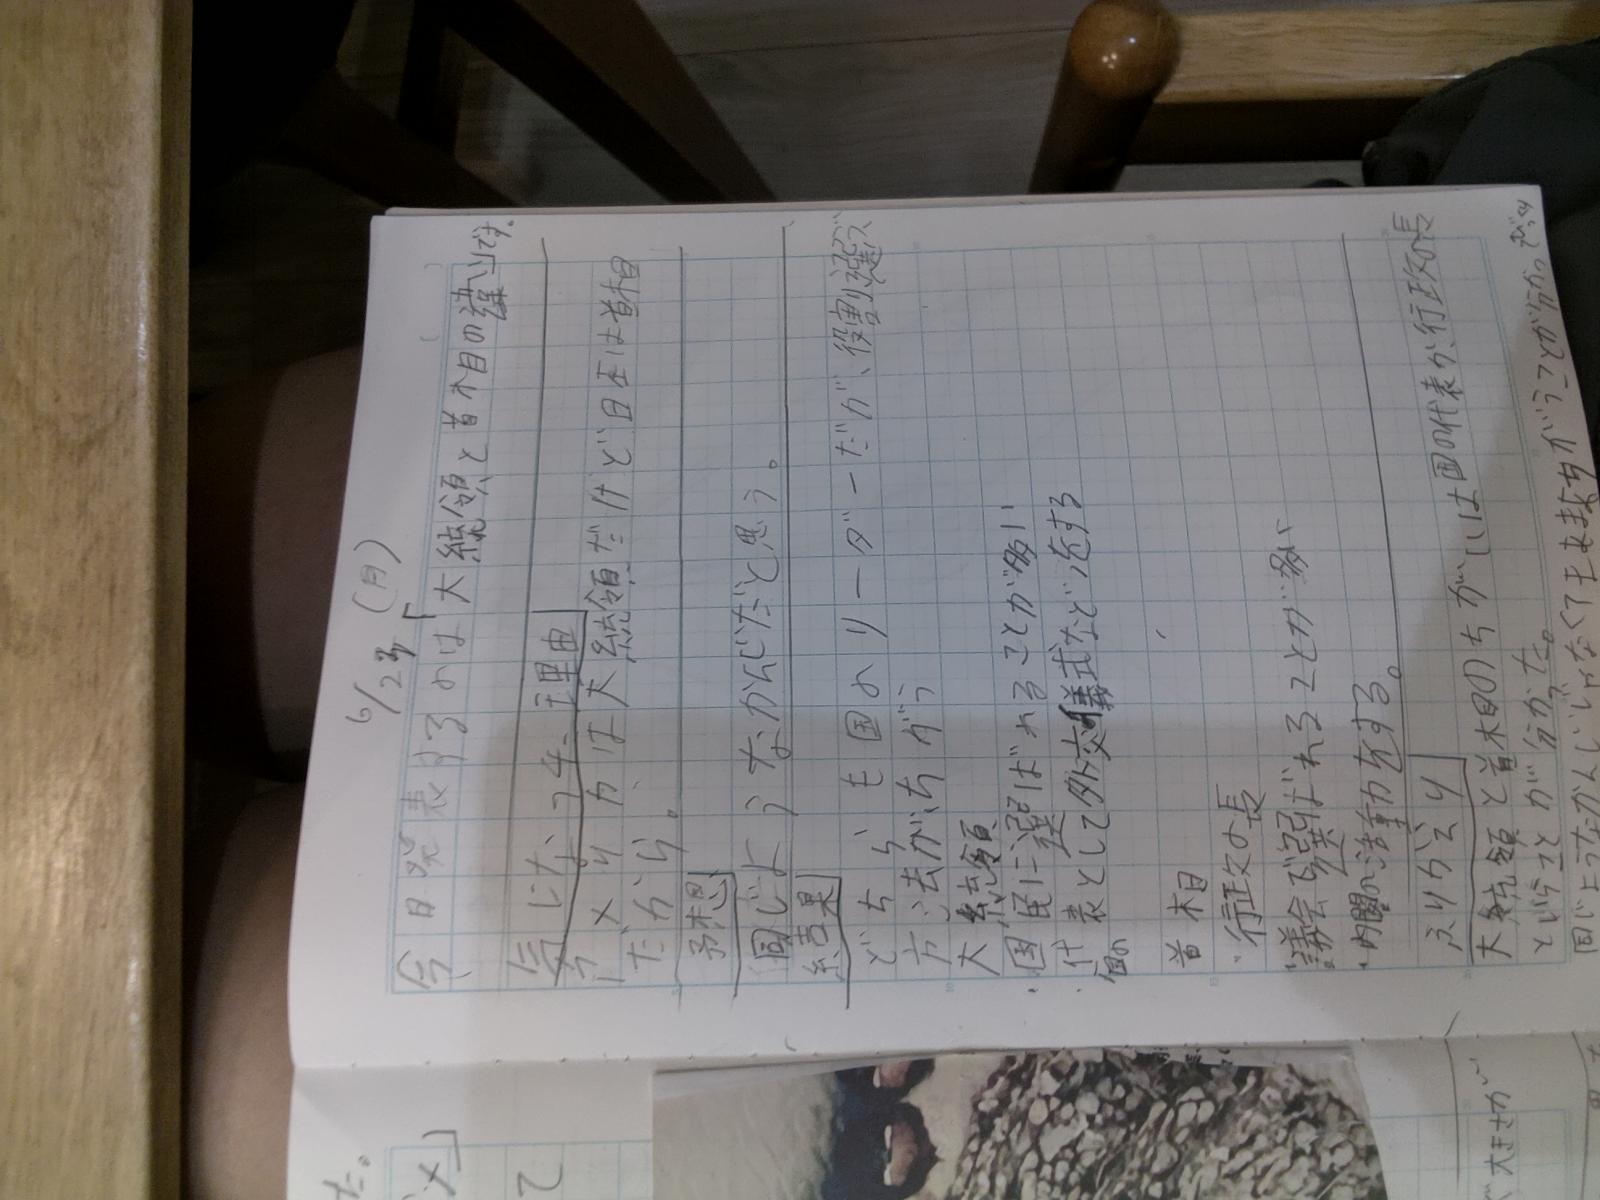 6/23(月)
今日発表するのは「大統領と首相の違いです。
気になった理由
アメリカは大統領だけど日本は首相
だから。
予想
同じようなかんじだと思う。
結果
どちらも国のリーダーだが、役割、選び
方法がちがう
大統領
・国民に選ばれることが多い
・代表として外交、儀式などをする
国の
首相
・行政の長
・議会で選ばれることが多い
・内閣の活動をする。
ふりかえり
大統領と首相のちがいは国の代表か行政の長
ということが分かった。
同じようなかんじじゃなくてもまあまあちがうことが分かった。びっくり
た。
て
大きさが